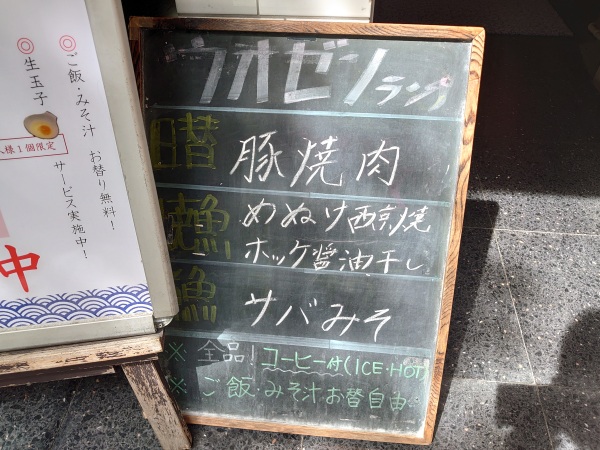 ◎ご飯・みそ汁 お替り無料!
◎生玉子
様1個限定
サービス実施中!
中
ウオゼンランチ
豚焼肉
焼魚
めぬけ西京焼
ホッケ醤油干し
魚
サバみそ
※全品!コーヒー付(ICE・HOT)
※ご飯・みそ汁お替自由